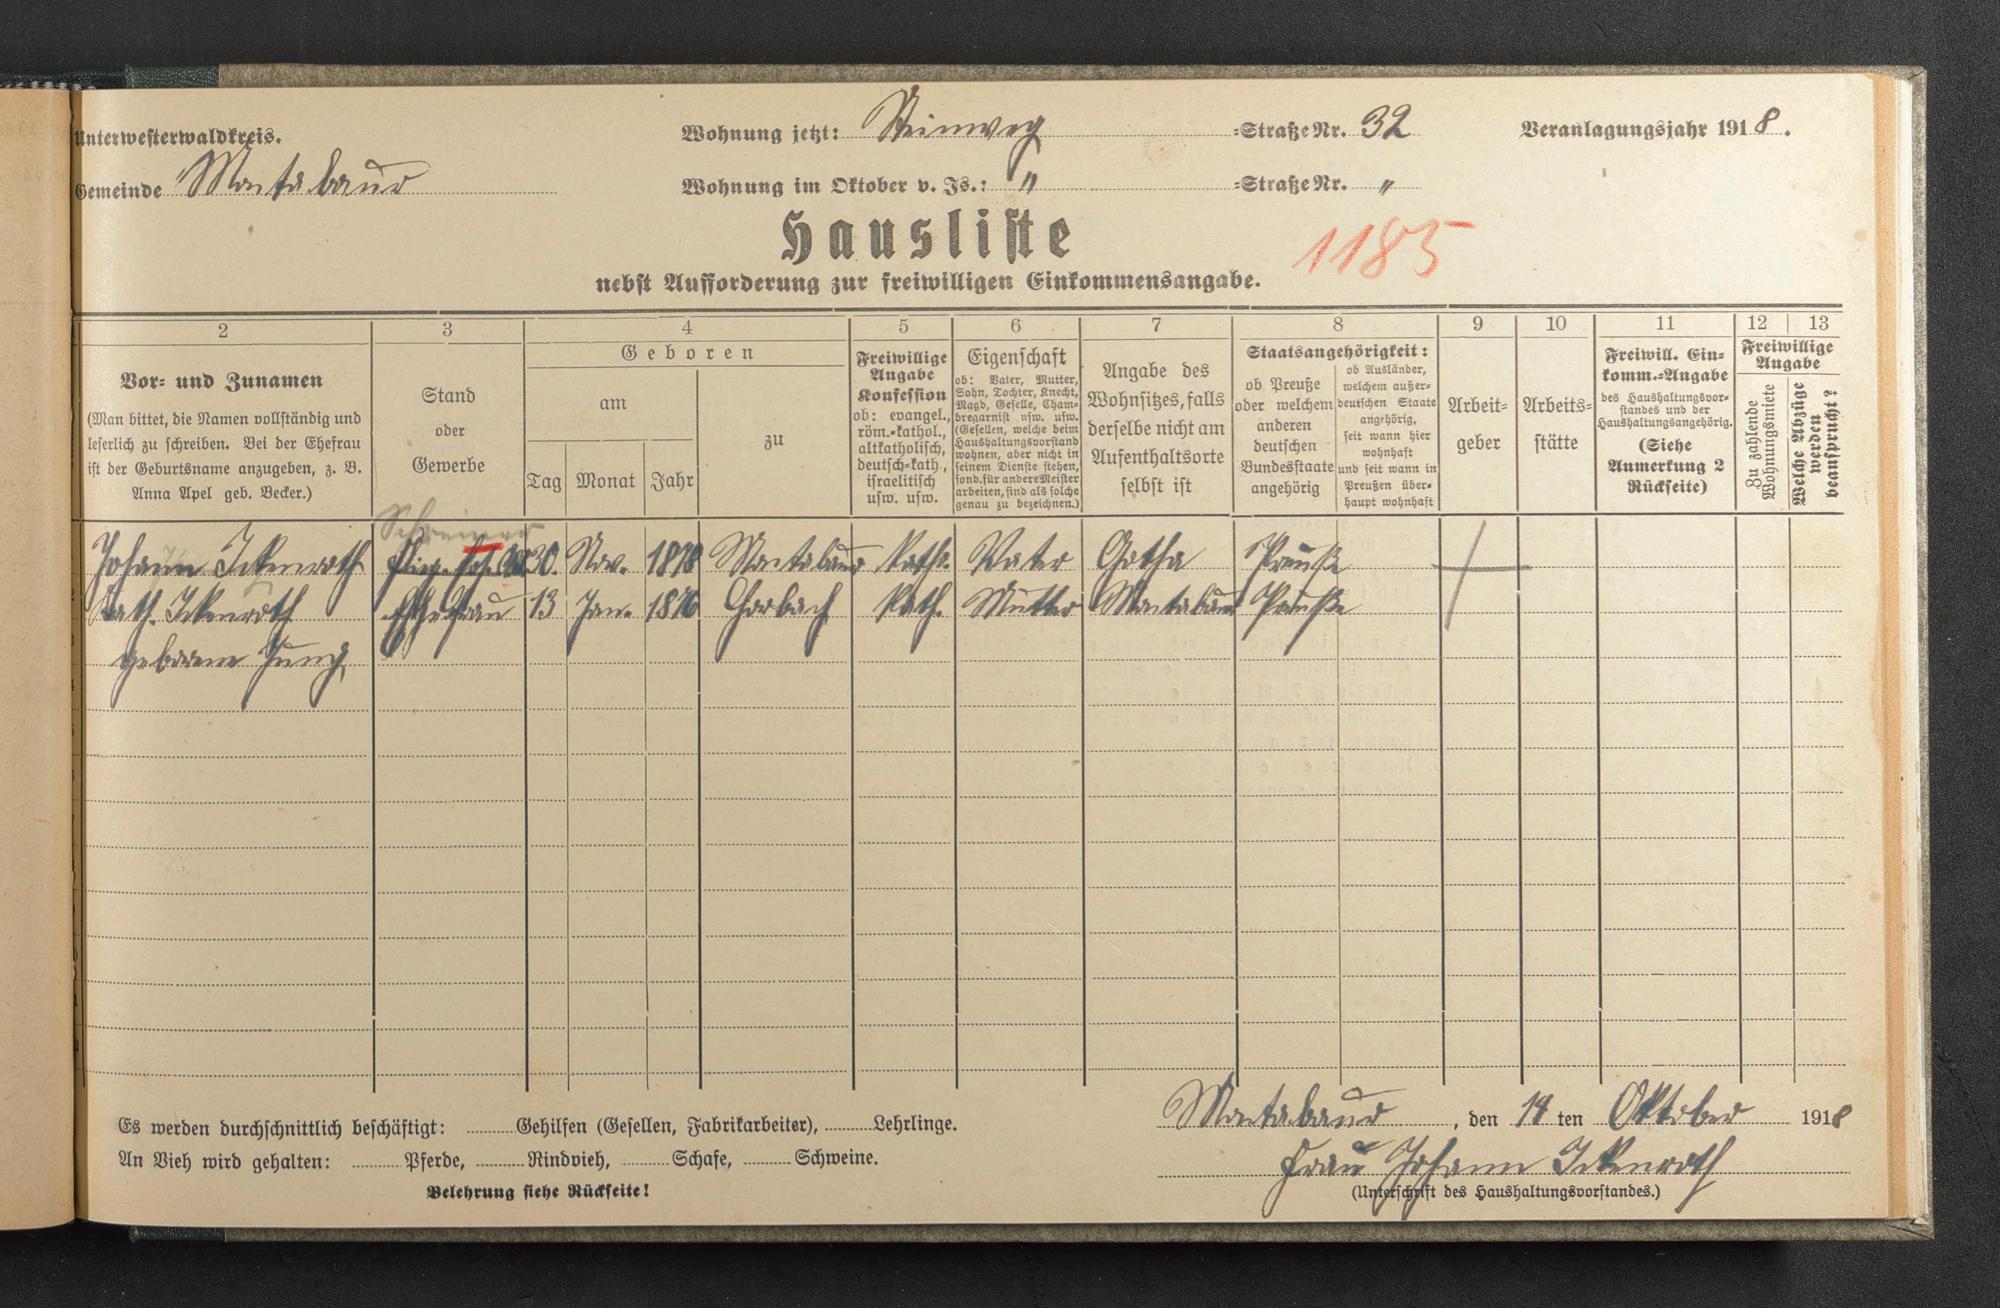 Unterwesterwaldkreis.
Wohnung jetzt: Steinweg =Straße Nr. 32
Veranlagungsjahr 1918.
Gemeinde Montabaur
Wohnung im Oktober v. Js.: " =Straße Nr. "
Hausliste
1185
nebst Aufforderung zur freiwilligen Einkommensangabe.
2 3 4 5 6 7 8 9 10 11 12 13
Vor- und Zunamen
(Man bittet, die Namen vollständig und
leserlich zu schreiben. Bei der Ehefrau
ist der Geburtsname anzugeben, z. B.
Anna Apel geb. Becker.)
Stand
oder
Gewerbe
Geboren
am
Tag Monat Jahr
zu
Freiwillige
Angabe
Konfession
ob: evangel.,
röm.-kathol.,
altkatholisch,
deutsch-kath.,
israelitisch
usw. usw.
Eigenschaft
ob: Vater, Mutter,
Sohn, Tochter, Knecht,
Magd, Geselle, Cham-
bregarnist usw. usw.
(Gesellen, welche beim
Haushaltungsvorstand
wohnen, aber nicht in
seinem Dienste stehen,
sond. für andere Meister
arbeiten, sind als solche
genau zu bezeichnen.)
Angabe des
Wohnsitzes, falls
derselbe nicht am
Aufenthaltsorte
selbst ist
Staatsangehörigkeit:
ob Preuße
oder welchem
anderen
deutschen
Bundesstaate
angehörig
ob Ausländer,
welchem außer-
deutschen Staate
angehörig,
seit wann hier
wohnhaft
und seit wann in
Preußen über-
haupt wohnhaft
Arbeit-
geber
Arbeits-
stätte
Freiwill. Ein-
komm.-Angabe
des Haushaltungsvor-
standes und der
Haushaltungsangehörig.
(Siehe
Anmerkung 2
Rückseite)
Freiwillige
Angabe
Zu zahlende
Wohnungsmiete
Welche Abzüge
werden
beansprucht?
Schreiner
Johann Ickenroth 30. Nov. 1878 Montabaur Kath. Vater Gotha Preuße
Kath. Ickenroth Ehefrau 13 Jan. 1876 Horbach Kath. Mutter Montabaur Preuße
geborene Jung
Es werden durchschnittlich beschäftigt: Gehilfen (Gesellen, Fabrikarbeiter), Lehrlinge.
An Vieh wird gehalten: Pferde, Rindvieh, Schafe, Schweine.
Belehrung siehe Rückseite!
Montabaur, den 14ten Oktober 1918
Frau Johann Ickenroth
(Unterschrift des Haushaltungsvorstandes.)